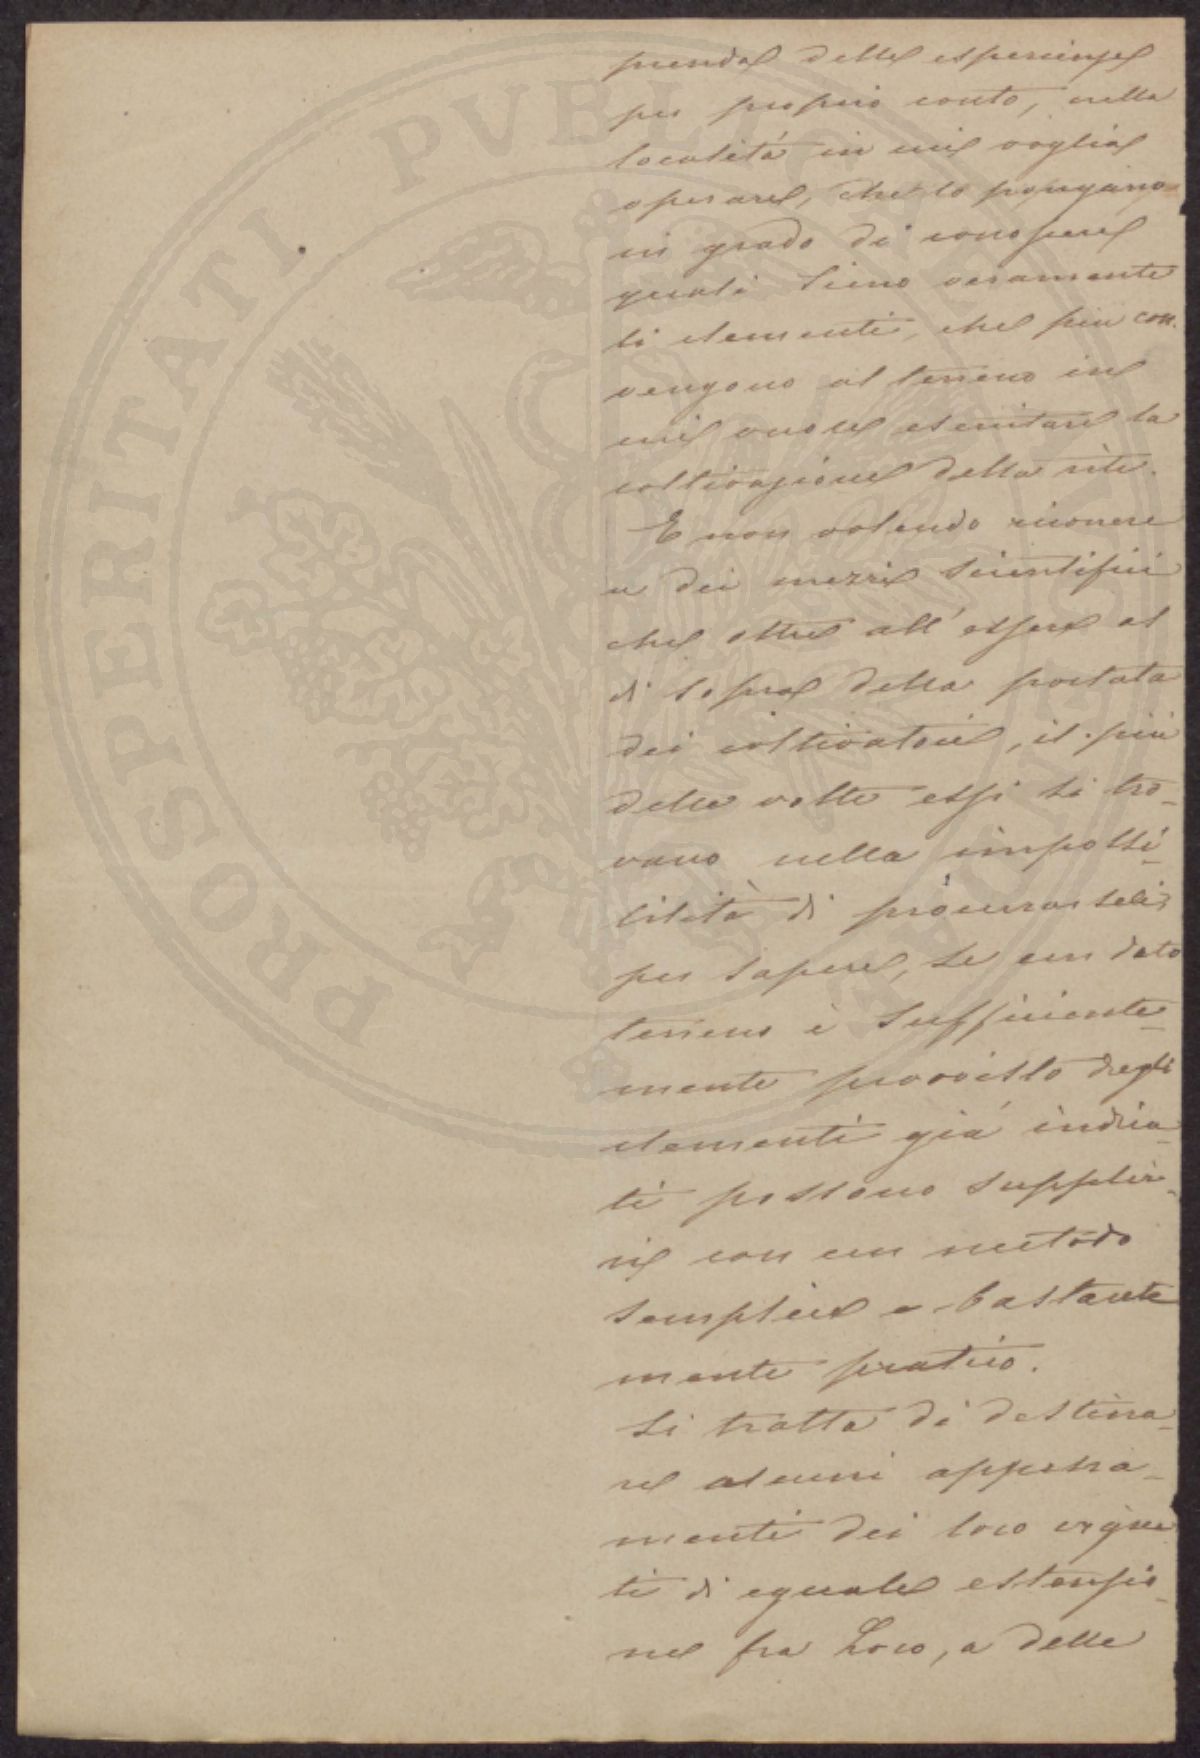 prenda delle esperienze
per proprio conto, nella
località in cui voglia
operare, che lo pongano
in grado di conoscere
quali sieno veramente
li elementi, che più con-
vengono al terreno in
cui vuole esercitare la
coltivazione della vite.
E non volendo ricorrere
a dei mezzi scientifici
che oltre all'essere al
di sopra della portata
dei coltivatori, il più
delle volte essi si tro-
vano nella impossi-
bilità di procurarseli
per sapere, se un dato
terreno è sufficiente-
mente provvisto degli
elementi già indica-
ti possono supplir-
vi con un metodo
semplice e bastante
mente pratico.
Si tratta di destina-
re alcuni appezza-
menti dei loro vigne
ti di eguale estensio-
ne fra Loro, a delle
PROSPERITATI PVBLICAE